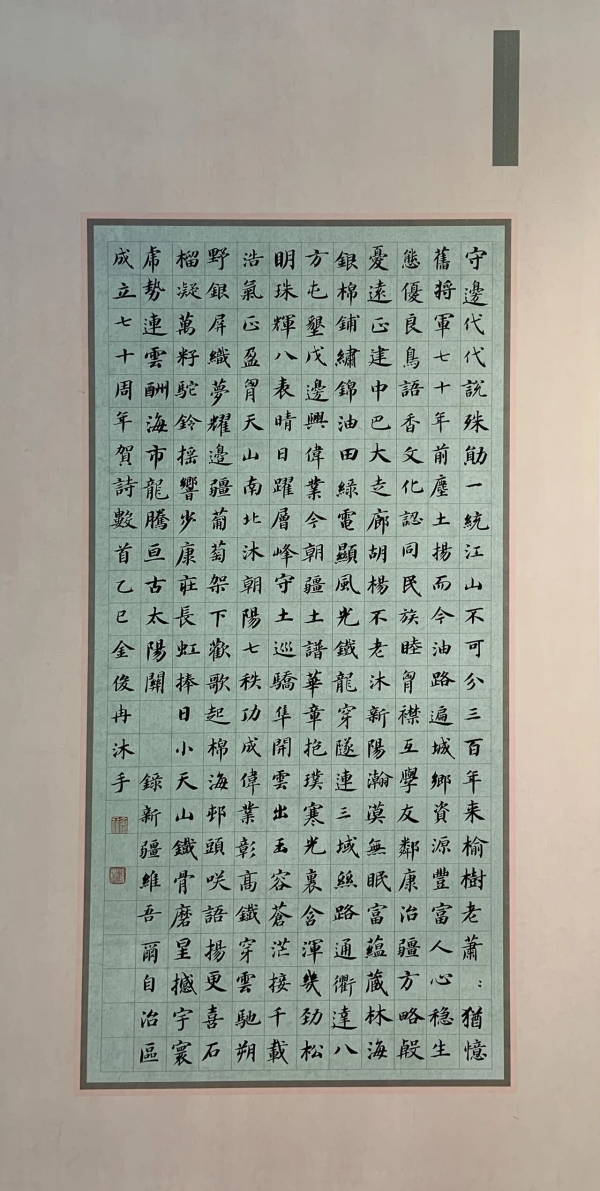 守邊代代說殊勛一統江山不可分三百年来榆樹老蕭〻猶憶
舊將軍七十年前塵土揚而今油路遍城鄉資源豐富人心穩生
態優良鳥語香文化認同民族睦胷襟互學友鄰康治疆方略殷
憂遠正建中巴大走廊胡楊不老沐新陽瀚漠無眠富蘊藏林海
銀棉鋪繡錦油田綠電顯風光鐵龍穿隧連三域絲路通衢達八
方屯墾戍邊興偉業今朝疆土譜華章抱璞寒光裏含渾幾勁松
明珠輝八表晴日躍層峰守土巡驕隼開雲出玉容蒼茫接千載
浩氣正盈胷天山南北沐朝陽七秩功成偉業彰高鐵穿雲馳朔
野銀屏織夢耀邊疆葡萄架下歡歌起棉海邨頭咲語揚更喜石
榴凝萬籽駝鈴摇響步康莊長虹捧日小天山鐵骨磨星撼宇寰
虎勢連雲酬海市龍騰亘古太陽關 錄新疆維吾爾自治區
成立七十周年賀詩數首乙巳金俊冉沐手